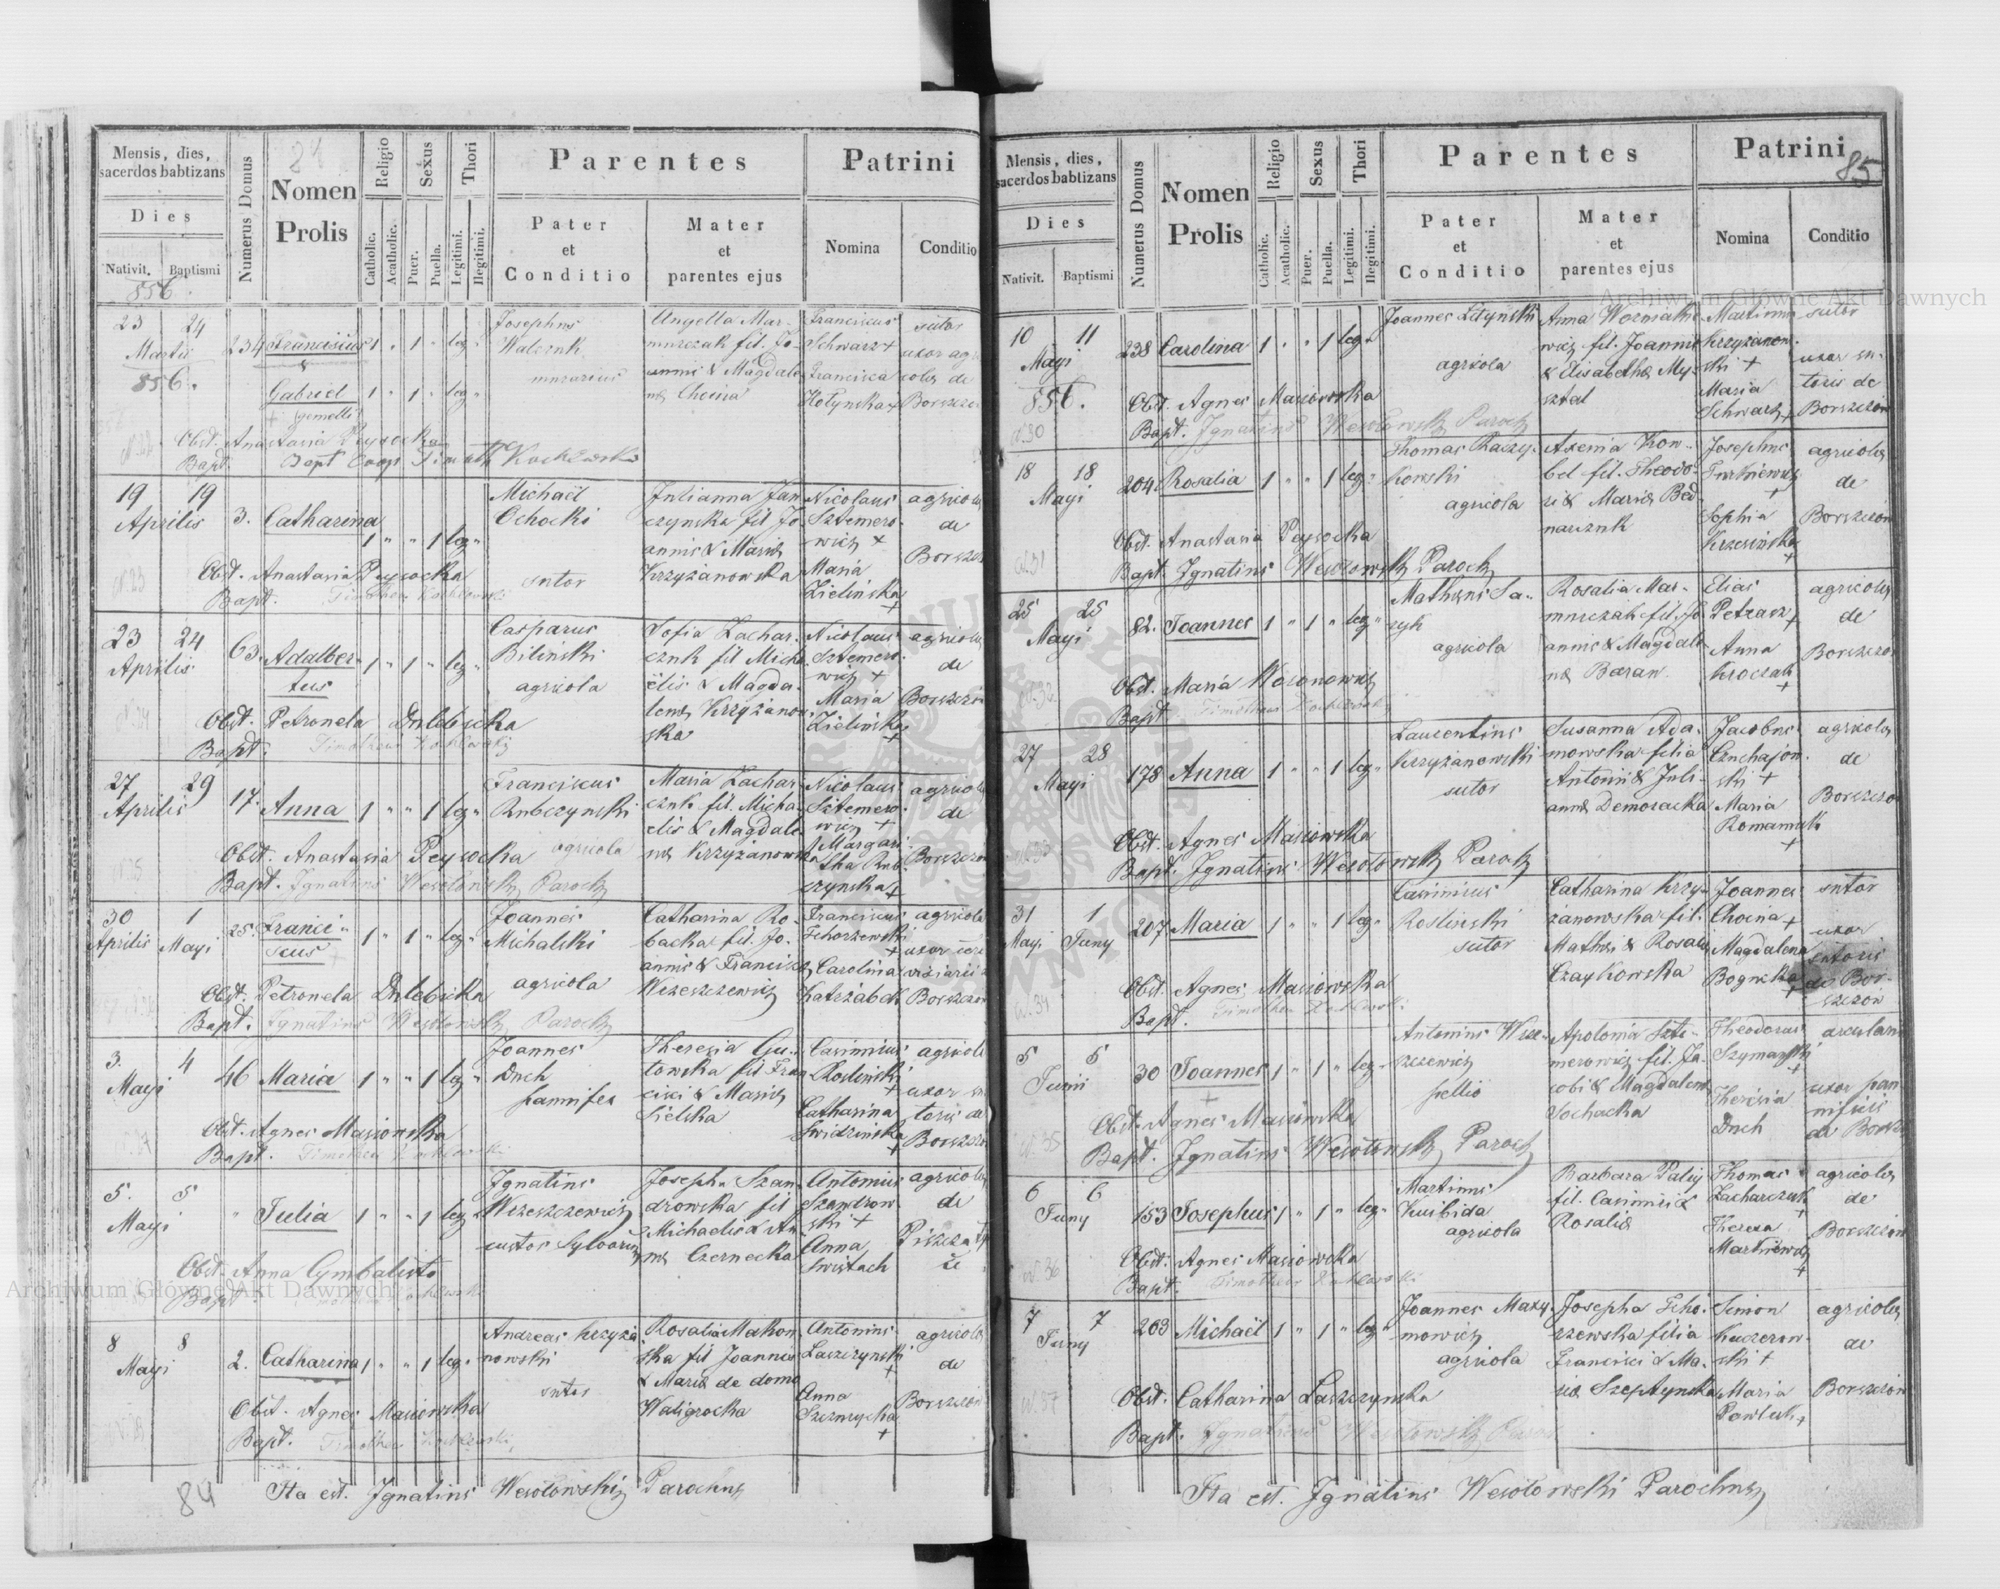 Mensis, dies,
sacerdos babtizans
Dies
Nativit. Baptismi
856
Numerus Domus
Nomen
Prolis
Religio
Catholic.
Acatholic.
Sexus
Puer.
Puella.
Thori
Legitimi.
Ilegitimi.
Parentes
Pater
et
Conditio
Mater
et
parentes ejus
Patrini
Nomina
Conditio
23 24
Martii
856.
234
Franciscus
Gabriel
gemelli
1 " 1 " leg "
1 " 1 " leg "
Josephus
Walcznk
murarius
Angella Mar-
mnrczak fil. Jo-
annis & Magdale-
nae Chocina
Franciscus
Schwarz +
Francisca
Hotynska +
sutor
uxor agri
colae de
Borszczo
Obst. Anastasia Peysocka
Bapt. Bapt Coop Timoth Kochlewski
19 19
Aprilis
3.
Catharina
1 " " 1 leg "
Michaël
Ochocki
sutor
Julianna Jan
czynska fil Jo-
annis & Mariae
Krzyżanowska
Nicolaus
Sztemero-
wicz +
Maria
Zielinska
+
agricolae
de
Borszczo
Obst. Anastasia Peysocka
Bapt.
23 24
Aprilis
63.
Adalber-
tus
1 " 1 " leg "
Casparus
Bilinski
agricola
Sofia Zachar-
cznk fil Micha
ëlis & Magda-
lenae Krzyżanow-
ska
Nicolaus
Sztemero-
wicz +
Maria
Zielinska
+
agricolae
de
Borszczo
Obst. Petronela Dulebicka
Bapt.
27 29
Aprilis
17.
Anna
1 " " 1 leg "
Franciscus
Rubczynski
agricola
Maria Zachar-
cznk fil. Micha-
elis & Magdale-
nae Krzyżanowska
Nicolaus
Sztemero-
wicz +
Margari-
tha Rub-
czynska +
agricolae
de
Borszczo
Obst. Anastasia Peysocka
Bapt. Ignatius Wesołowski Paroch
30 1
Aprilis Mayi
25.
Franci-
scus
1 " 1 " leg "
Joannes
Michalski
agricola
Catharina Ro-
backa fil. Jo-
annis & Franciscae
Wrzeszczewicz
Franciscus
Tchorzewski
+
Carolina
Katrżabek
agricola
uxor
Borszczo
Obst. Petronela Dulebicka
Bapt. Ignatius Wesołowski Paroch
3. 4
Mayi
46
Maria
1 " " 1 leg "
Joannes
Duch
pannifex
Theresia Gu-
towska fil Fran
cisci & Mariae
Sielska
Casimirus
Roslinski
+
Catharina
Swidzinska
+
agricola
uxor su
toris de
Borszczo
Obst. Agnes Masiowska
Bapt.
5. 5
Mayi
"
Julia
1 " " 1 leg "
Ignatius
Wrzeszczewicz
custos Sylvarum
Josepha Szan
drowska fil
Michaelis & An
nae Czernecka
Antonius
Szandrow-
ski +
Anna
Swistach
agricolae
de
Piszczaty
Obst. Anna Cymbalisto
Bapt.
8 8
Mayi
2.
Catharina
1 " " 1 leg "
Andreas Krzyża
nowski
sutor
Rosalia Makow
ska fil Joannis
& Mariae de domo
Waligrocka
Antonius
Laszczynski
+
Anna
Szczurycka
+
agricolae
de
Borszczow
Obst. Agnes Masiowska
Bapt.
84
Ita est. Ignatius Wesołowski Parochus
85
Mensis, dies,
sacerdos babtizans
Dies
Nativit. Baptismi
Numerus Domus
Nomen
Prolis
Religio
Catholic.
Acatholic.
Sexus
Puer.
Puella.
Thori
Legitimi.
Ilegitimi.
Parentes
Pater
et
Conditio
Mater
et
parentes ejus
Patrini
Nomina
Conditio
10 11
Mayi
856.
238
Carolina
1 " " 1 leg "
Joannes Litynski
agricola
Anna Wozniakie
wicz fil. Joannis
& Elisabethae My-
sztal
Martinus
Krzyżanow-
ski +
Maria
Schwarz +
sutor
uxor su-
toris de
Borszczow
Obst. Agnes Masiowska
Bapt. Ignatius Wesołowski Paroch
N.30
18 18
Mayi
204
Rosalia
1 " " 1 leg "
Thomas Raczy-
kowski
agricola
Axenia Kow-
bel fil. Theodo-
ri & Mariae Bed-
narcznk
Josephus
Turkiewicz
+
Sophia
Krzesinska
+
agricolae
de
Borszczow
Obst. Anastasia Peysocka
Bapt. Ignatius Wesołowski Paroch
N.31
25 25
Mayi
82.
Joannes
1 " 1 " leg "
Mathaeus Sa-
ryk
agricola
Rosalia Mar-
mnrczak fil. Jo
annis & Magdale
nae Baran
Elias
Petrasz
+
Anna
Kroczak
+
agricolae
de
Borszczow
Obst. Maria Woronowicz
Bapt.
27 28
Mayi
178
Anna
1 " " 1 leg "
Laurentius
Krzyżanowski
sutor
Susanna Ada-
mowska filia
Antonii & Juli-
annae Demoracka
Jacobus
Czuchajow-
ski +
Maria
Romaniuk
+
agricolae
de
Borszczow
Obst. Agnes Masiowska
Bapt. Ignatius Wesołowski Paroch
31 1
Mayi Juny
207
Maria
1 " " 1 leg "
Casimirus
Roslinski
sutor
Catharina Krzy-
żanowska fil.
Mathaei & Rosaliae
Czaykowska
Joannes
Chocina +
Magdalena
Bogucka
+
sutor
uxor
sutoris
de Bor-
szczow
Obst. Agnes Masiowska
Bapt.
N.34
5 5
Junii
30
Joannes
1 " 1 " leg "
Antonius Wrze-
szczewicz
pellio
Apolonia Szte-
merowicz fil. Ja-
cobi & Magdalenae
Sochacka
Theodorus
Szymanski
+
Theresia
Duch
uxor pan
nificis
de Borszcz
Obst. Agnes Masiowska
Bapt. Ignatius Wesołowski Paroch
N.35
6 6
Juny
153
Josephus
1 " 1 " leg "
Martinus
Kusbida
agricola
Barbara Paliy
fil. Casimiri &
Rosaliae
Thomas
Zacharczuk
+
Theresa
Martinowicz
+
agricolae
de
Borszczow
Obst. Agnes Masiowska
Bapt.
N.36
7 7
Juny
203
Michaël
1 " 1 " leg "
Joannes Maxy-
mowicz
agricola
Josepha Tcho-
rzewska filia
Francisci & Ma-
riae Szeptynska
Simon
Kuczerow-
ski +
Maria
Powluk +
agricolae
de
Borszczow
Obst. Catharina Laszczynska
Bapt. Ignatius Wesołowski Paroch
N.37
Ita est. Ignatius Wesołowski Parochus
Archiwum Główne Akt Dawnych
Archiwum Główne Akt Dawnych